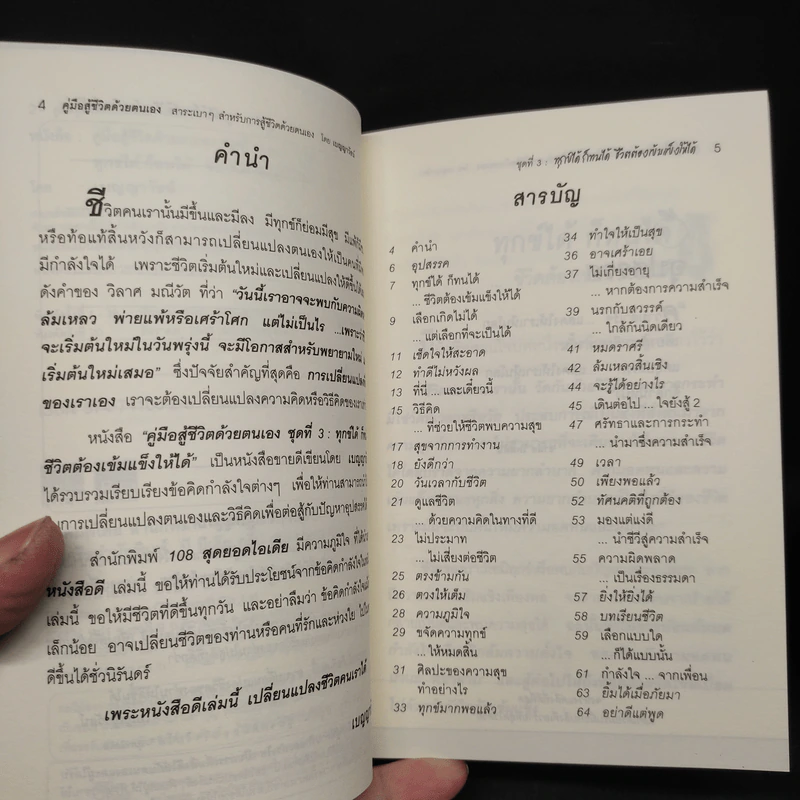 4 คู่มือสู้ชีวิตด้วยตนเอง สาระเบาๆ สำหรับการสู้ชีวิตด้วยตนเอง โดย เบญญาวัธน์
คำนำ
ชีวิตคนเรานั้นมีขึ้นและมีลง มีทุกข์ก็ย่อมมีสุข มีแพ้
หรือท้อแท้สิ้นหวังก็สามารถเปลี่ยนแปลงตนเองให้เป็นคนที่
มีกำลังใจได้ เพราะชีวิตเริ่มต้นใหม่และเปลี่ยนแปลงให้ดีขึ้นได้
ดังคำของ วิลาศ มณีวัต ที่ว่า "วันนี้เราอาจจะพบกับความ
ล้มเหลว พ่ายแพ้หรือเศร้าโศก แต่ไม่เป็นไร ...เพราะเรา
จะเริ่มต้นใหม่ในวันพรุ่งนี้ จะมีโอกาสสำหรับพยายามใหม่
เริ่มต้นใหม่เสมอ" ซึ่งปัจจัยสำคัญที่สุดคือ การเปลี่ยนแปลง
ของเราเอง เราจะต้องเปลี่ยนแปลงความคิดหรือวิธีคิดของเรา
หนังสือ "คู่มือสู้ชีวิตด้วยตนเอง ชุดที่ 3 : ทุกข์ได้ ก็
ชีวิตต้องเข้มแข็งให้ได้" เป็นหนังสือขายดีเขียนโดย เบญญา
ได้รวบรวมเรียบเรียงข้อคิดกำลังใจต่างๆ เพื่อให้ท่านสามารถ
การเปลี่ยนแปลงตนเองและวิธีคิดเพื่อต่อสู้กับปัญหาอุปสรรค
สำนักพิมพ์ 108 สุดยอดไอเดีย มีความภูมิใจ ที่ได้
หนังสือดี เล่มนี้ ขอให้ท่านได้รับประโยชน์จากข้อคิดกำลังใจใน
เล่มนี้ ขอให้มีชีวิตที่ดีขึ้นทุกวัน และอย่าลืมว่า ข้อคิดกำลังใจ
เล็กน้อย อาจเปลี่ยนชีวิตของท่านหรือคนที่รักและห่วงใย
ดีขึ้นได้ชั่วนิรันดร์
เพราะหนังสือดีเล่มนี้ เปลี่ยนแปลงชีวิตคนเราได้
เบญญา
ชุดที่ 3 : ทุกข์ได้ ก็ทนได้ ชีวิตต้องเข้มแข็งให้ได้ 5
สารบัญ
4 คำนำ
6 อุปสรรค
7 ทุกข์ได้ ก็ทนได้
... ชีวิตต้องเข้มแข็งให้ได้
9 เลือกเกิดไม่ได้
... แต่เลือกที่จะเป็นได้
11 เช็ดใจให้สะอาด
12 ทำดีไม่หวังผล
13 ที่นี่ ... และเดี๋ยวนี้
15 วิธีคิด
... ที่ช่วยให้ชีวิตพบความสุข
17 สุขจากการทำงาน
18 ยังดีกว่า
20 วันเวลากับชีวิต
21 ดูแลชีวิต
... ด้วยความคิดในทางที่ดี
23 ไม่ประมาท
... ไม่เสี่ยงต่อชีวิต
25 ตรงข้ามกัน
26 ตวงให้เต็ม
28 ความภูมิใจ
29 ขจัดความทุกข์
... ให้หมดสิ้น
31 ศิลปะของความสุข
ทำอย่างไร
33 ทุกข์มากพอแล้ว
34 ทำใจให้เป็นสุข
36 อาจเศร้าเอย
37 ไม่เกี่ยงอายุ
... หากต้องการความสำเร็จ
39 นรกกับสวรรค์
... ใกล้กันนิดเดียว
41 หมดราศรี
42 ล้มเหลวสิ้นเชิง
44 จะรู้ได้อย่างไร
45 เดินต่อไป ... ใจยังสู้ 2
47 ศรัทธาและการกระทำ
... นำมาซึ่งความสำเร็จ
49 เวลา
50 เพียงพอแล้ว
52 ทัศนคติที่ถูกต้อง
53 มองแต่แง่ดี
... นำชีวีสู่ความสำเร็จ
55 ความผิดพลาด
... เป็นเรื่องธรรมดา
57 ยิ่งให้ยิ่งได้
58 บทเรียนชีวิต
59 เลือกแบบใด
... ก็ได้แบบนั้น
61 กำลังใจ ... จากเพื่อน
63 ยิ้มได้เมื่อภัยมา
64 อย่าดีแต่พูด